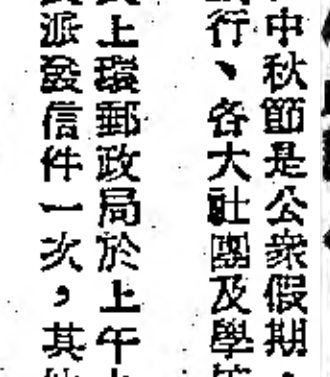 中秋節是公衆假期,
行、各大社團及學
上環郵政局於上午
派發信件一次,其